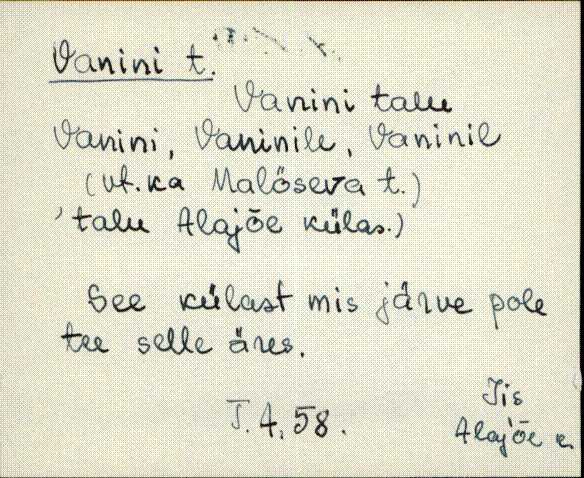 Vanini t.
Vanini talu
Vanini, Vaninile, Vaninil
(vt. ka Malõseva t.)
'talu Alajõe külas.)
See külast mis järve pole
tee selle äres.
J. A. 58.
Jis
Alajõe k.